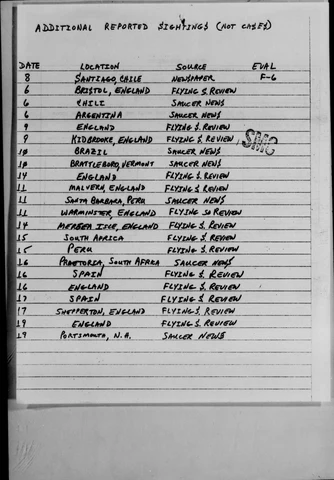 ADDITIONAL REPORTED SIGHTINGS (NOT CASES)
DATE LOCATION SOURCE EVAL
8 SANTIAGO, CHILE NEWSPAPER F-6
6 BRISTOL, ENGLAND FLYING S. REVIEW
6 CHILI SAUCER NEWS
6 ARGENTINA SAUCER NEWS
9 ENGLAND FLYING S. REVIEW
9 KIDBROOKE, ENGLAND FLYING S. REVIEW SMC
10 BRAZIL SAUCER NEWS
10 BRATTLEBORO, VERMONT SAUCER NEWS
14 ENGLAND FLYING S. REVIEW
11 MALVERN, ENGLAND FLYING S. REVIEW
11 SANTA BARBARA, PERU SAUCER NEWS
11 WARMINSTER, ENGLAND FLYING SO REVIEW
14 MERSEA ISLE, ENGLAND FLYING S. REVIEW
15 SOUTH AFRICA FLYING S. REVIEW
15 PERU FLYING S. REVIEW
16 PRAETORIA, SOUTH AFRIA SAUCER NEWS
16 SPAIN FLYING S. REVIEW
16 ENGLAND FLYING S. REVIEW
17 SPAIN FLYING S. REVIEW
17 SHEPPERTON, ENGLAND FLYING S. REVIEW
19 ENGLAND FLYING S. REVIEW
19 PORTSMOUTH, N.H. SAUCER NEWS